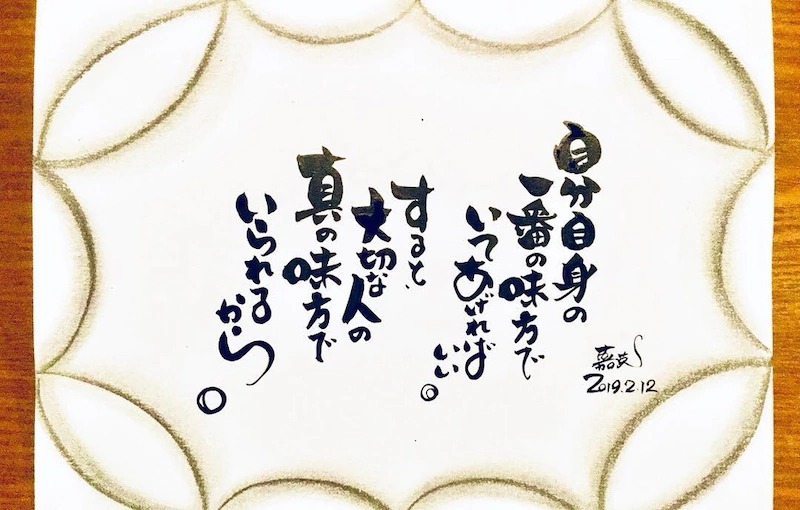 自分自身の
一番の味方で
いてあげれば
いい。
すると、
大切な人の
真の味方で
いられる
から。
2019.2.12